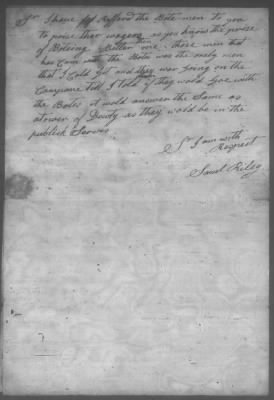 Sr I have Reffard the Bote men to you
to price thar wagers as yes knows the prise
of Boteing Better then me. those men that
has Cam with the Botes was the onely men
that I Cold Git and they war going on the
Campane till I told if they would Goe with
the Botes it wold answer the Same as
a tower of Dewty as they would be in the
publick Servis
Sr I am with
Respect
Saml Riley